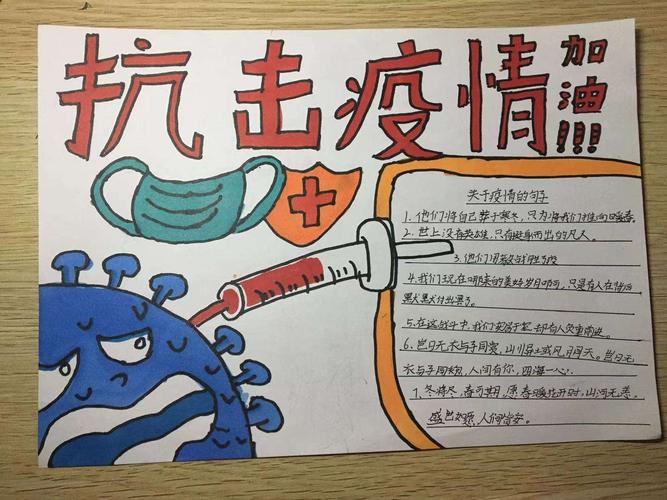 抗击疫情
加油!!!
关于疫情的句子
1、他们将自己葬于寒冬,只为将我们推向回暖春。
2、世上没有英雄,只有挺身而出的凡人。
3、他们用
4、我们现在哪来的美好岁月叩可,只是有人在背后
默默付出罢了。
5、在这战斗中,我们安居于室,却有人负重前进。
6、岂曰无衣与子同裳,山川异土或风月同天。岂曰无
衣与子同袍,人间有你,四海一心
7、冬将尽,春可期,愿春暖花开时,山河无恙。
盛色如愿,人们皆安。